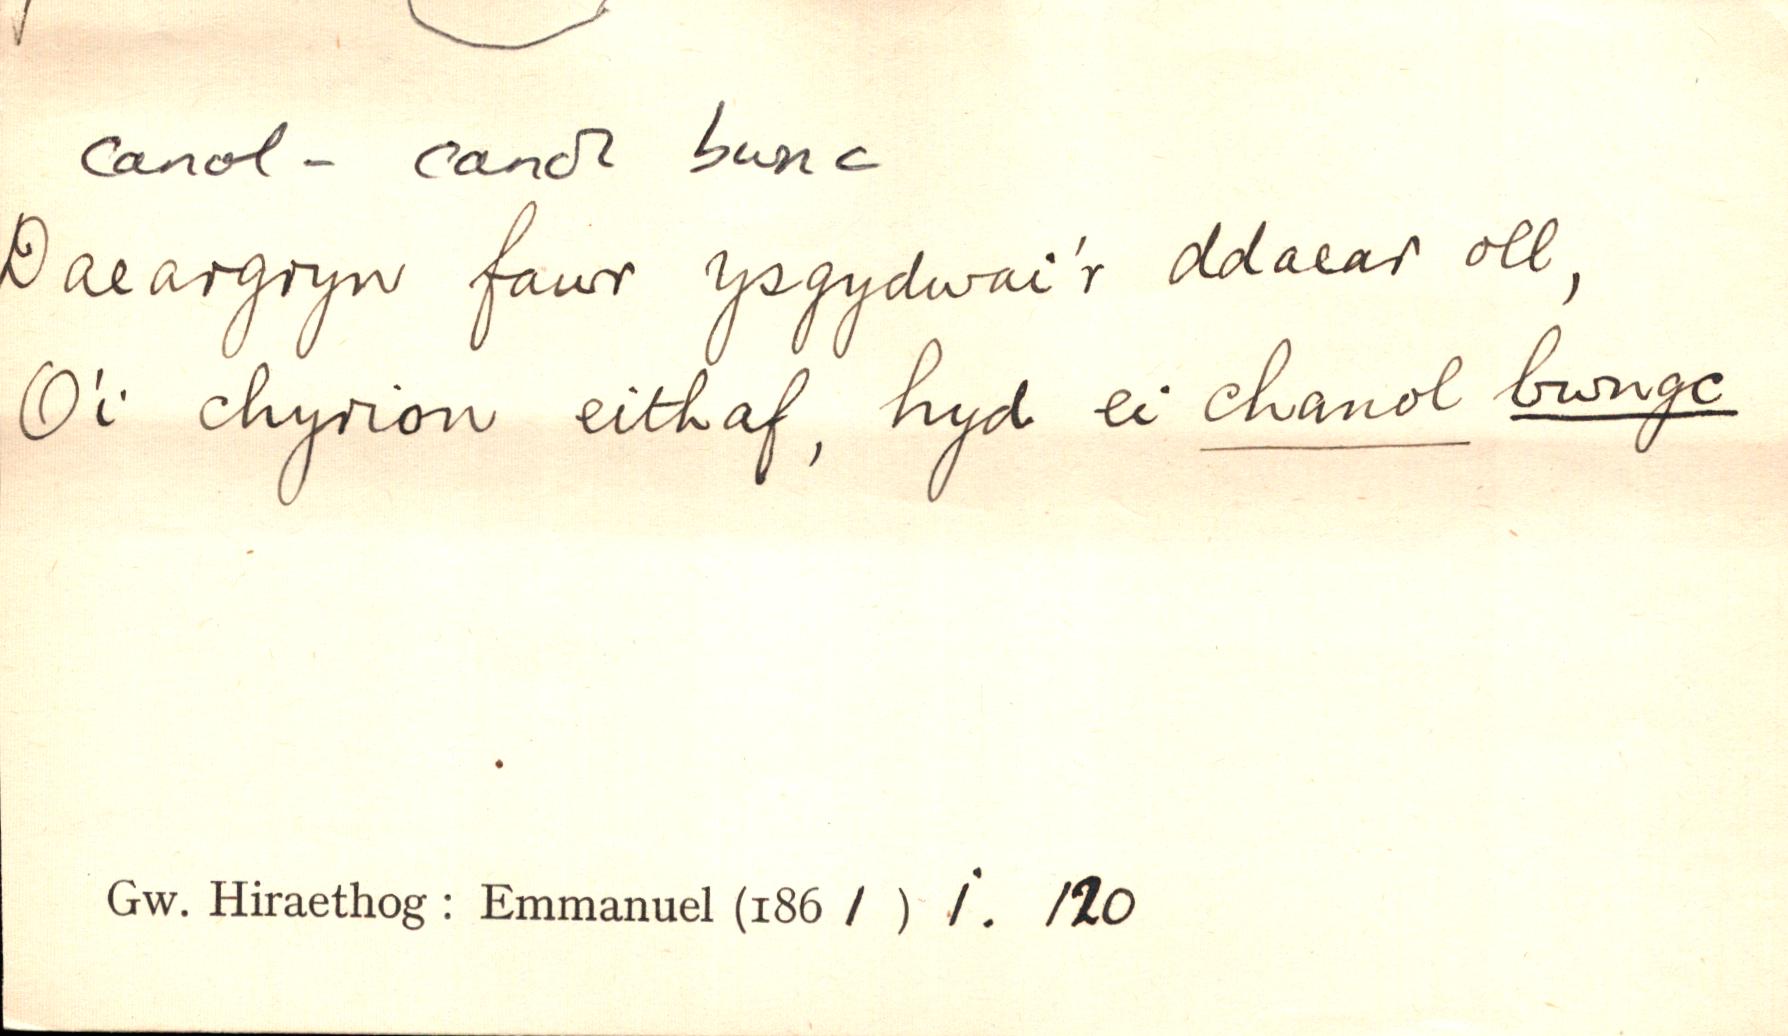 canol - canol bwnc
Daeargryn fawr ysgydwai'r ddaear oll,
O'i chyrion eithaf, hyd ei chanol bwngc
Gw. Hiraethog : Emmanuel (1861) i. 120